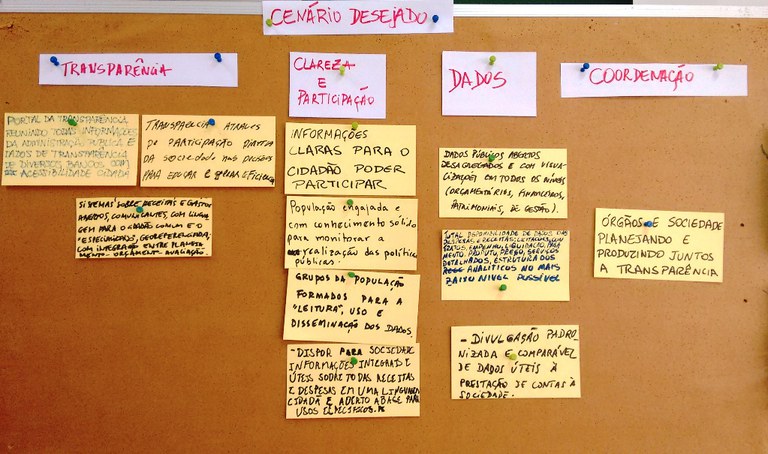 CENÁRIO DESEJADO
TRANSPARÊNCIA
PORTAL DA TRANSPARÊNCIA
REUNINDO TODAS INFORMAÇÕES
DA ADMINISTRAÇÃO PÚBLICA E
DADOS DE TRANSPARÊNCIA
DE DIVERSOS BANCOS, COM
ACESSIBILIDADE CIDADÃ
TRANSPARÊNCIA ATRAVÉS
DE PARTICIPAÇÃO DIRETA
DA SOCIEDADE NOS
PARA GERAR EFICIÊNCIA
SISTEMAS SOBRE RECEITAS E GASTOS
ABERTOS, COMUNICANTES, COM LINGUA
GEM PARA O CIDADÃO COMUM E O
"ESPECIALIZADO", GEOREFERENCIADA,
COM INTEGRAÇÃO ENTRE PLANEJA
MENTO - ORÇAMENT - AVALIAÇÃO.
CLAREZA
E
PARTICIPAÇÃO
INFORMAÇÕES
CLARAS PARA O
CIDADÃO PODER
PARTICIPAR
População engajada e
com conhecimento sólido
para monitorar a
realização das políticas
públicas.
GRUPOS DA POPULAÇÃO
FORMADOS PARA A
"LEITURA", USO E
DISSEMINAÇÃO DOS DADOS.
- DISPOR PARA SOCIEDADE
INFORMAÇÕES INTEGRAIS E
ÚTEIS SOBRE TODAS RECEITAS
E DESPESAS EM UMA LINGUAGEM
CIDADÃ E ABERTO A BASE PARA
USOS ESPECÍFICOS.
DADOS
DADOS PÚBLICOS ABERTOS
DESAGREGADOS E COM VISUA-
LIZAÇÕES EM TODOS OS NÍVEIS
(ORÇAMENTÁRIOS, FINANCEIROS,
PATRIMONIAIS, DE GESTÃO).
TOTAL DISPONIBILIDADE DE DADOS DAS
DESPESAS E RECEITAS: LICITAÇÃO, CON
TRATOS, EMPENHO, LIQUIDAÇÃO, PAGA
MENTO, PRODUTO, PREÇO, SERVIÇOS
DETALHADOS, ESTRUTURA DOS
ANALÍTICOS NO MAIS
BAIXO NÍVEL POSSÍVEL
- DIVULGAÇÃO PADRO-
NIZADA E COMPARÁVEL
DE DADOS ÚTEIS À
PRESTAÇÃO DE CONTAS À
SOCIEDADE.
COORDENAÇÃO
ÓRGÃOS E SOCIEDADE
PLANEJANDO E
PRODUZINDO JUNTOS
A TRANSPARÊNCIA